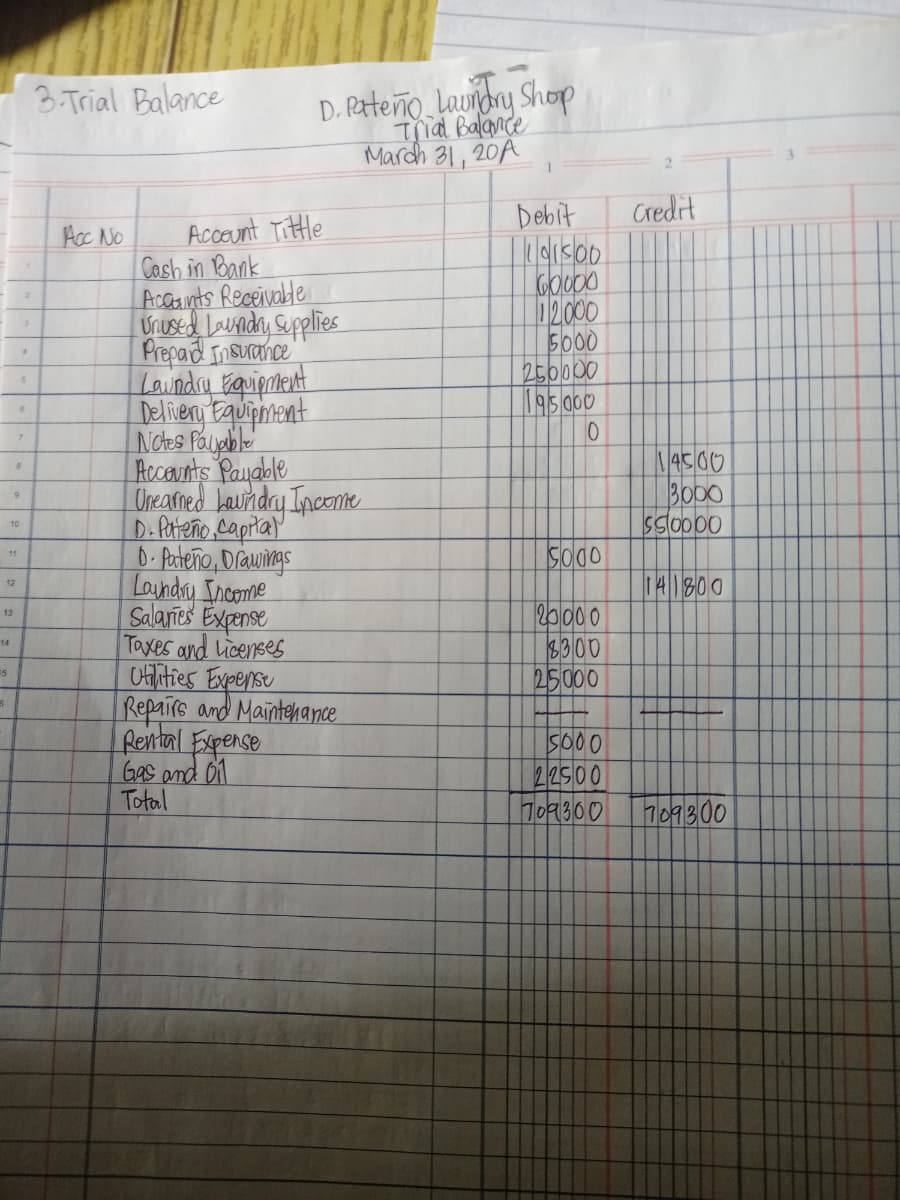 3. Trial Balance
D. Pateño Laundry Shop
Trial Balance
March 31, 20A
1 2 3
Acc No Account Tittle Debit Credit
1 Cash in Bank 101500
2 Accounts Receivable 60000
3 Unused Laundry Supplies 12000
4 Prepaid Insurance 5000
5 Laundry Equipment 250000
6 Delivery Equipment 195000
7 Notes Payable 0
8 Accounts Payable 14500
9 Unearned Laundry Income 3000
10 D. Pateño, Capital 550000
11 D. Pateño, Drawings 5000
12 Laundry Income 141800
13 Salaries Expense 20000
14 Taxes and Licenses 8300
Utilities Expense 25000
Repairs and Maintenance
Rental Expense 5000
Gas and Oil 22500
Total 709300 709300